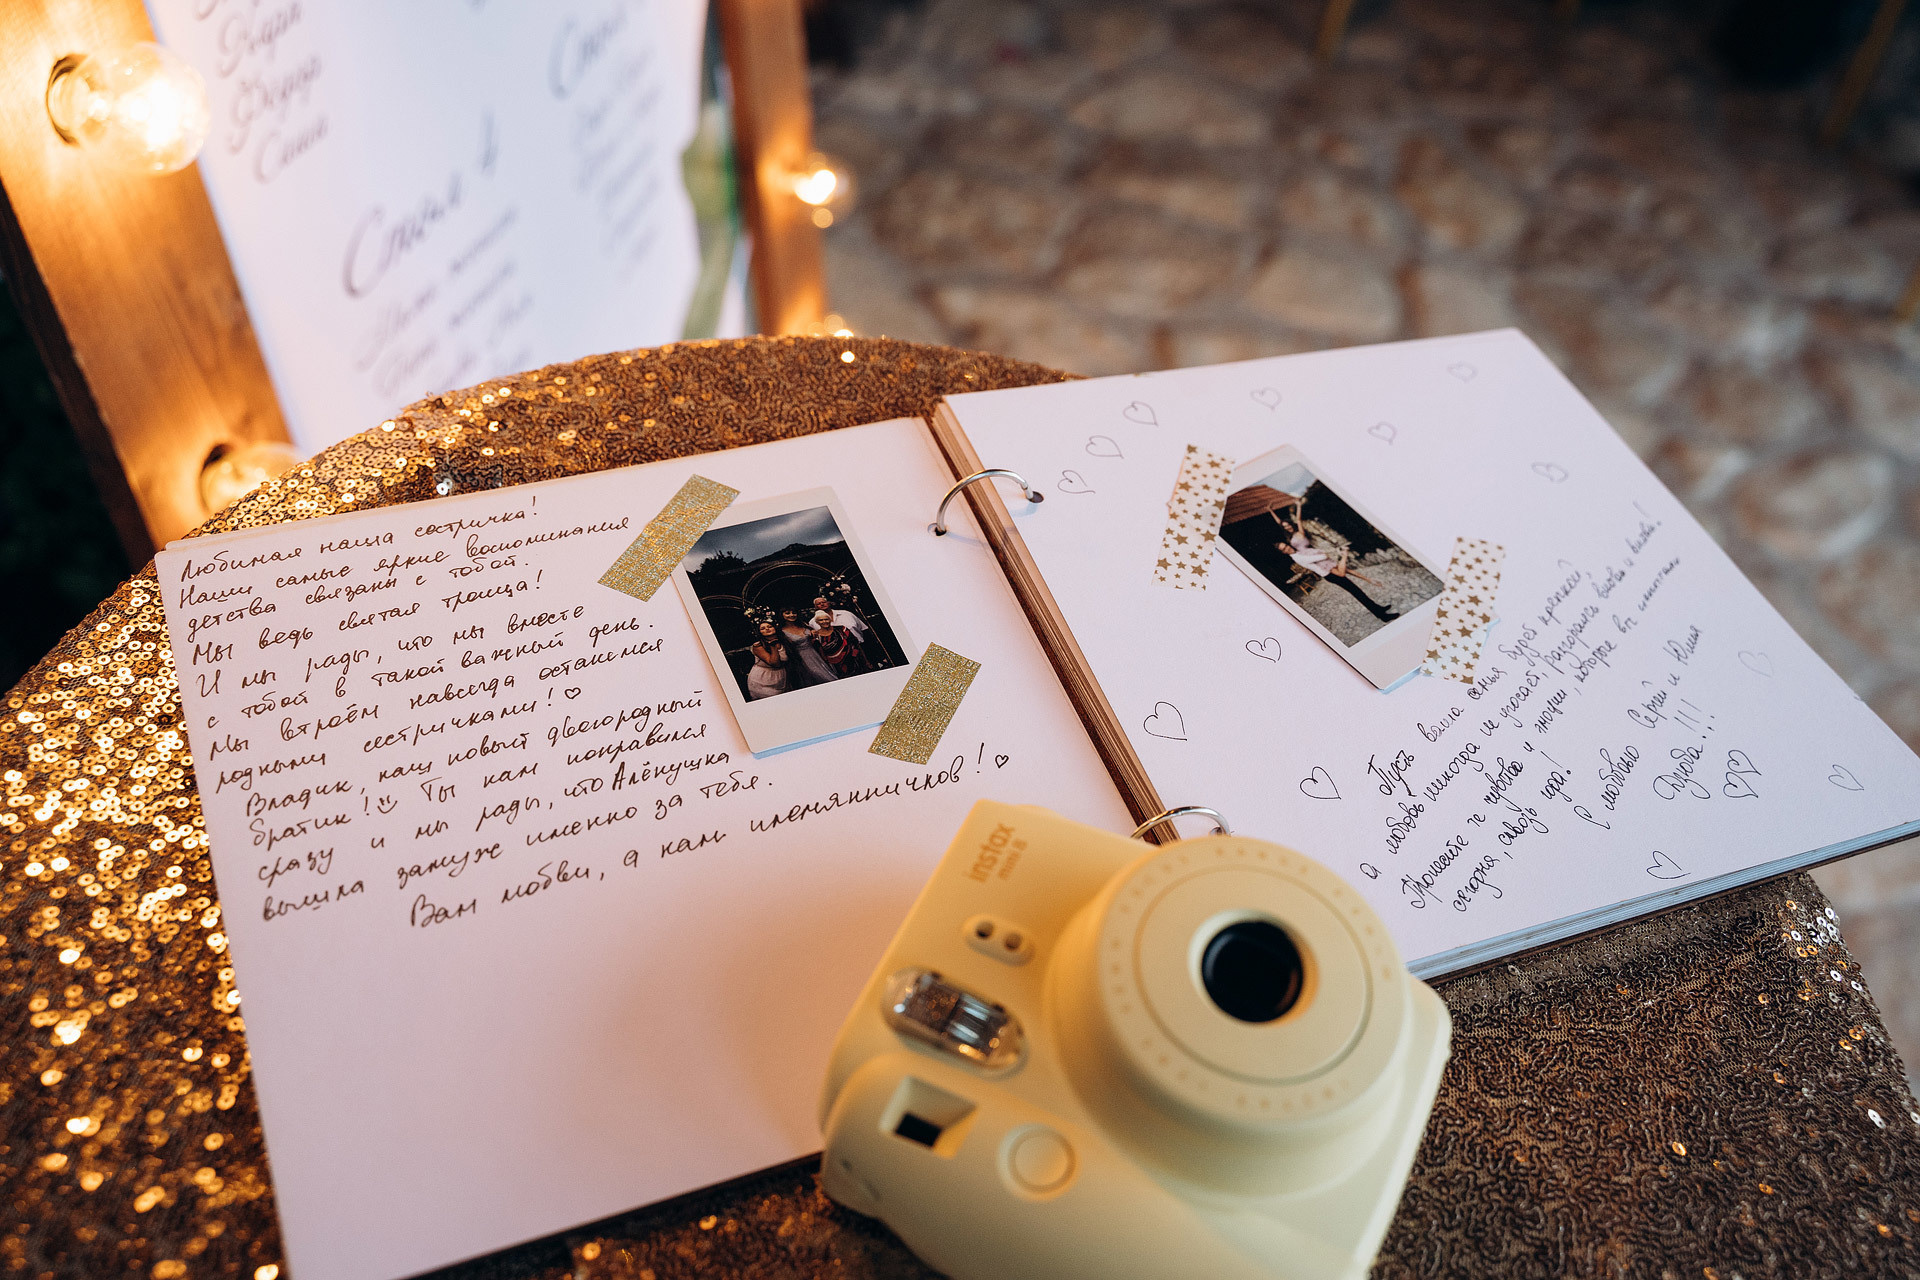 Родион
Фёдор
Саша
Стол 4
Любимая наша сестричка!
Наши самые яркие воспоминания
детства связаны с тобой.
Мы ведь святая троица!
И мы рады, что мы вместе
с тобой в такой важный день.
Мы втроём навсегда останемся
родными сестричками! ♡
Владик, наш новый двоюродный
братик! Ты нам понравился
сразу и мы рады, что Алёнушка
вышла замуж именно за тебя.
Вам любви, а нам племянничков! ♡
Пусть ваша семья будет крепкой,
а любовь никогда не угасает, разгораясь вновь и вновь!
Пронесите те чувства и эмоции, которые вы испытали
сегодня, сквозь года!
С любовью Сергей и Юлия
Дзюба!!!
instax
mini 8